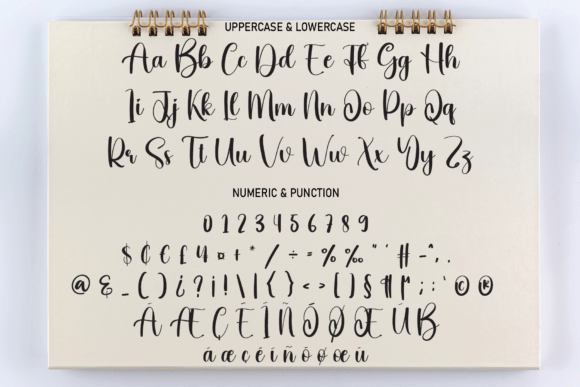 UPPERCASE & LOWERCASE
Aa Bb Cc Dd Ee Ff Gg Hh
Ii Jj Kk Ll Mm Nn Oo Pp Qq
Rr Ss Tt Uu Vv Ww Xx Yy Zz
NUMERIC & PUNCTION
0 1 2 3 4 5 6 7 8 9
$ ¢ € £ ¥ ¤ + * / ÷ = % ‰ " ' # - ^ , .
@ & _ ( ) ¿ ? ¡ ! \ | { } < > [ ] § ¶ µ ; : ' © ®
À Æ Ç É Í Ñ Ó Ø Œ Ú ß
á æ ç é í ñ ó ø œ ú